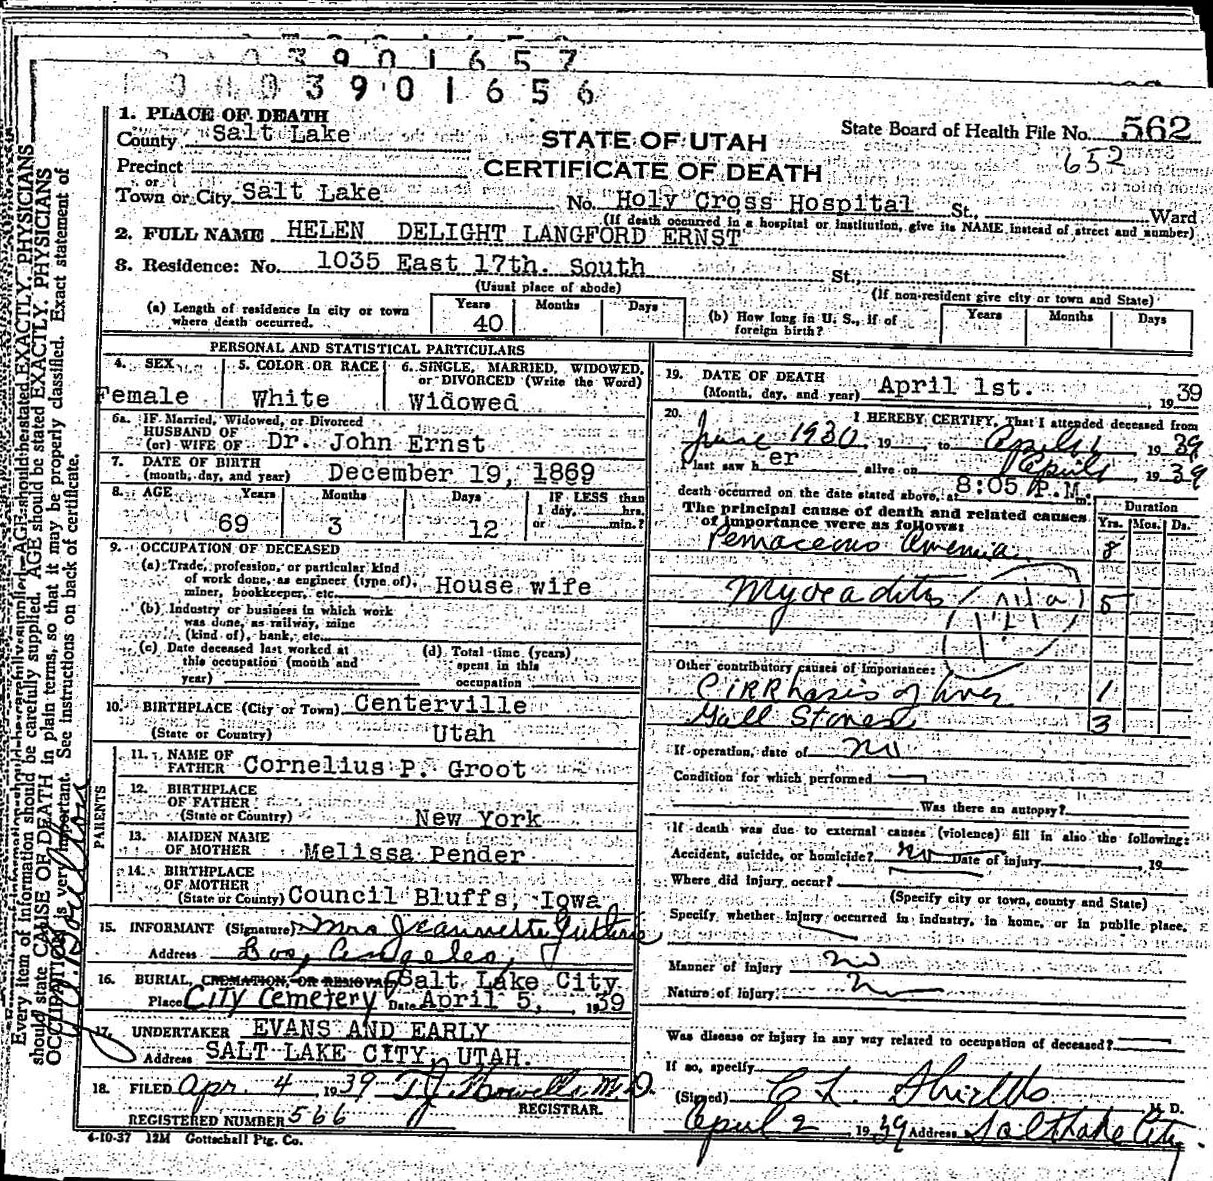 0 3 9 0 1 6 5 7
0 3 9 0 1 6 5 6
1. PLACE OF DEATH
County Salt Lake
STATE OF UTAH
CERTIFICATE OF DEATH
State Board of Health File No. 562
652
Precinct
or
Town or City Salt Lake No. Holy Cross Hospital St., Ward
(If death occurred in a hospital or institution, give its NAME instead of street and number)
2. FULL NAME HELEN DELIGHT LANGFORD ERNST
3. Residence: No. 1035 East 17th. South St.,
(Usual place of abode) (If non-resident give city or town and State)
(a) Length of residence in city or town where death occurred. Years 40 Months Days
(b) How long in U. S., if of foreign birth? Years Months Days
PERSONAL AND STATISTICAL PARTICULARS
4. SEX Female
5. COLOR OR RACE White
6. SINGLE, MARRIED, WIDOWED, or DIVORCED (Write the Word) Widowed
6a. IF Married, Widowed, or Divorced
HUSBAND OF
(or) WIFE OF Dr. John Ernst
7. DATE OF BIRTH
(month, day, and year) December 19, 1869
8. AGE Years 69 Months 3 Days 12 IF LESS than 1 day, hrs. or min.?
9. OCCUPATION OF DECEASED
(a) Trade, profession, or particular kind
of work done, as engineer (type of),
miner, bookkeeper, etc. House wife
(b) Industry or business in which work
was done, as railway, mine
(kind of), bank, etc.
(c) Date deceased last worked at
this occupation (month and
year)
(d) Total time (years)
spent in this
occupation
10. BIRTHPLACE (City or Town) Centerville
(State or Country) Utah
PARENTS
11. NAME OF
FATHER Cornelius P. Groot
12. BIRTHPLACE
OF FATHER
(State or Country) New York
13. MAIDEN NAME
OF MOTHER Melissa Pender
14. BIRTHPLACE
OF MOTHER
(State or County) Council Bluffs, Iowa
15. INFORMANT (Signature) Mrs Jeannette Guthrie
Address Los Angeles,
16. BURIAL, CREMATION, OR REMOVAL Salt Lake City
Place City Cemetery Date April 5, 1939
17. UNDERTAKER EVANS AND EARLY
Address SALT LAKE CITY, UTAH.
18. FILED Apr. 4 1939 T J Howells M.D.
REGISTRAR.
REGISTERED NUMBER 566
4-10-37 12M Gottschall Ptg. Co.
19. DATE OF DEATH
(Month, day, and year) April 1st. 1939
20. I HEREBY CERTIFY, That I attended deceased from
June 1930, 19 to April 1 1939
I last saw h er alive on April 1 1939
death occurred on the date stated above, at 8:05 P.M. m.
The principal cause of death and related causes
of importance were as follows:
Duration
Yrs. Mos. Ds.
Pernaceous Anemia 8
Myocaditis 5
Other contributory causes of importance:
CIRRhosis of liver 1
Gall Stones 3
If operation, date of no
Condition for which performed
Was there an autopsy?
If death was due to external causes (violence) fill in also the following:
Accident, suicide, or homicide? no Date of injury 19
Where did injury occur?
(Specify city or town, county and State)
Specify whether injury occurred in industry, in home, or in public place.
Manner of injury no
Nature of injury no
Was disease or injury in any way related to occupation of deceased?
If so, specify
(Signed) C L Shields M. D.
April 2 1939 Address Salt Lake City.
Every item of information should be carefully supplied. AGE should be stated EXACTLY. PHYSICIANS
should state CAUSE OF DEATH in plain terms, so that it may be properly classified. Exact statement of
OCCUPATION is very important. See instructions on back of certificate.